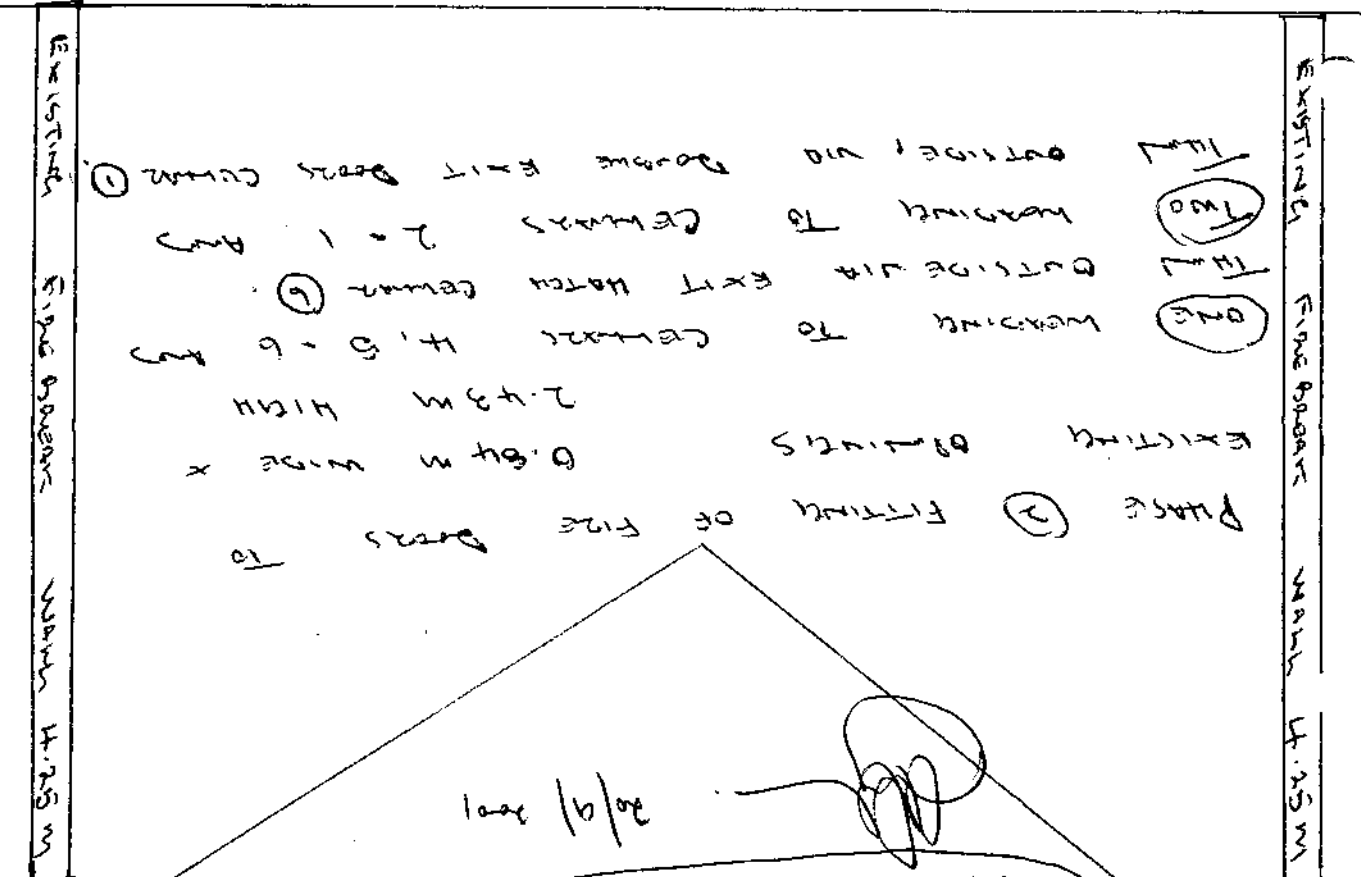 20/9/2001
PHASE 2 FITTING OF FIRE DOORS TO
EXISTING OPENINGS 0.84 M WIDE x
2.43 M HIGH
ONE LEADING TO CELLARS 4, 5 + 6 AND
THEN OUTSIDE VIA EXIT HATCH CELLAR 6.
TWO LEADING TO CELLARS 2 + 1 AND
THEN OUTSIDE, VIA DOUBLE EXIT DOORS CELLAR 1.
EXISTING FIRE BREAK WALL 4.25 M
EXISTING FIRE BREAK WALL 4.25 M